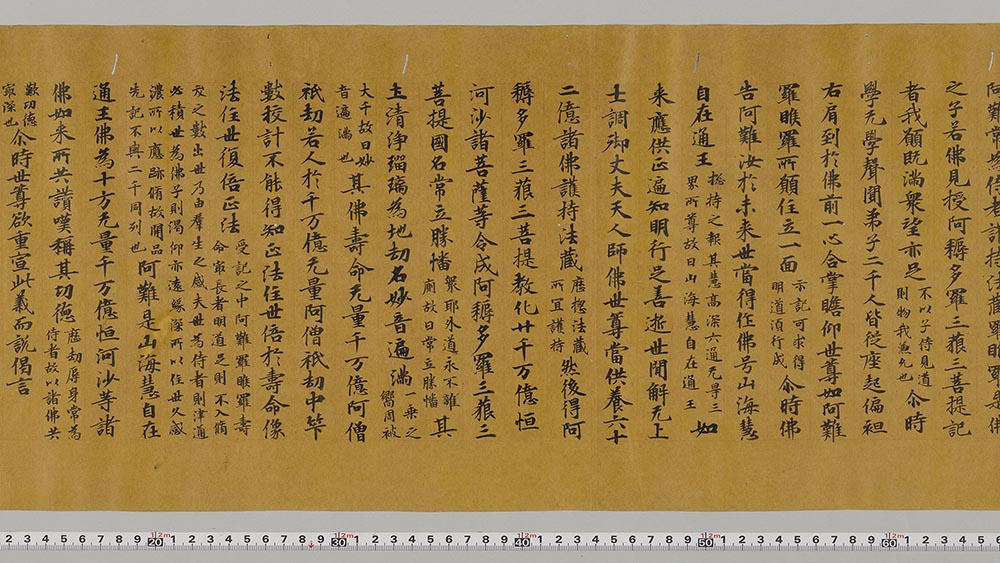 阿難常為侍者護持法藏羅睺羅是佛
之子若佛見授阿耨多羅三藐三菩提記
者我願既滿眾望亦足
不以子侍見道
則物我兼允也
尒時
學无學聲聞弟子二千人皆從座起偏袒
右肩到於佛前一心合掌瞻仰世尊如阿難
羅睺羅所願住立一面
示記可求得
明道須行成
尒時佛
告阿難汝於未來世當得作佛号山海慧
自在通王
惣持之報其慧高深六通无㝵三
界所尊故曰山海慧自在通王
如
來應供正遍知明行足善逝世間解无上
士調御丈夫天人師佛世尊當供養六十
二億諸佛護持法藏
歷惣法藏
所宜護持
然後得阿
耨多羅三藐三菩提教化廿千万億恒
河沙諸菩薩等令成阿耨多羅三藐三
菩提國名常立勝幡
衆耶外道永不誰
故曰常立勝幡
其
土清淨瑠璃為地劫名妙音遍滿
一乘之
嚮周被
大千故曰妙
音遍滿也
其佛壽命无量千万億阿僧
祇劫若人於千万億无量阿僧祇劫中筭
數挍計不能得知正法住世倍於壽命像
法住世復倍正法
受記之中阿難羅睺羅壽
命寂長者明道足則不入脩
短之數出世乃由群生之感夫世為侍者則津通
必積世為佛子則渴仰亦遠緣深所以住世久感
濃所以應跡脩故開品
先記不與二千同列也
阿難是山海慧自在
通王佛為十方无量千万億恒河沙等諸
佛如來所共讚嘆稱其功德
歷劫厚身常為
侍者故以諸佛共
歎功德
寂深也
尒時世尊欲重宣此義而說偈言